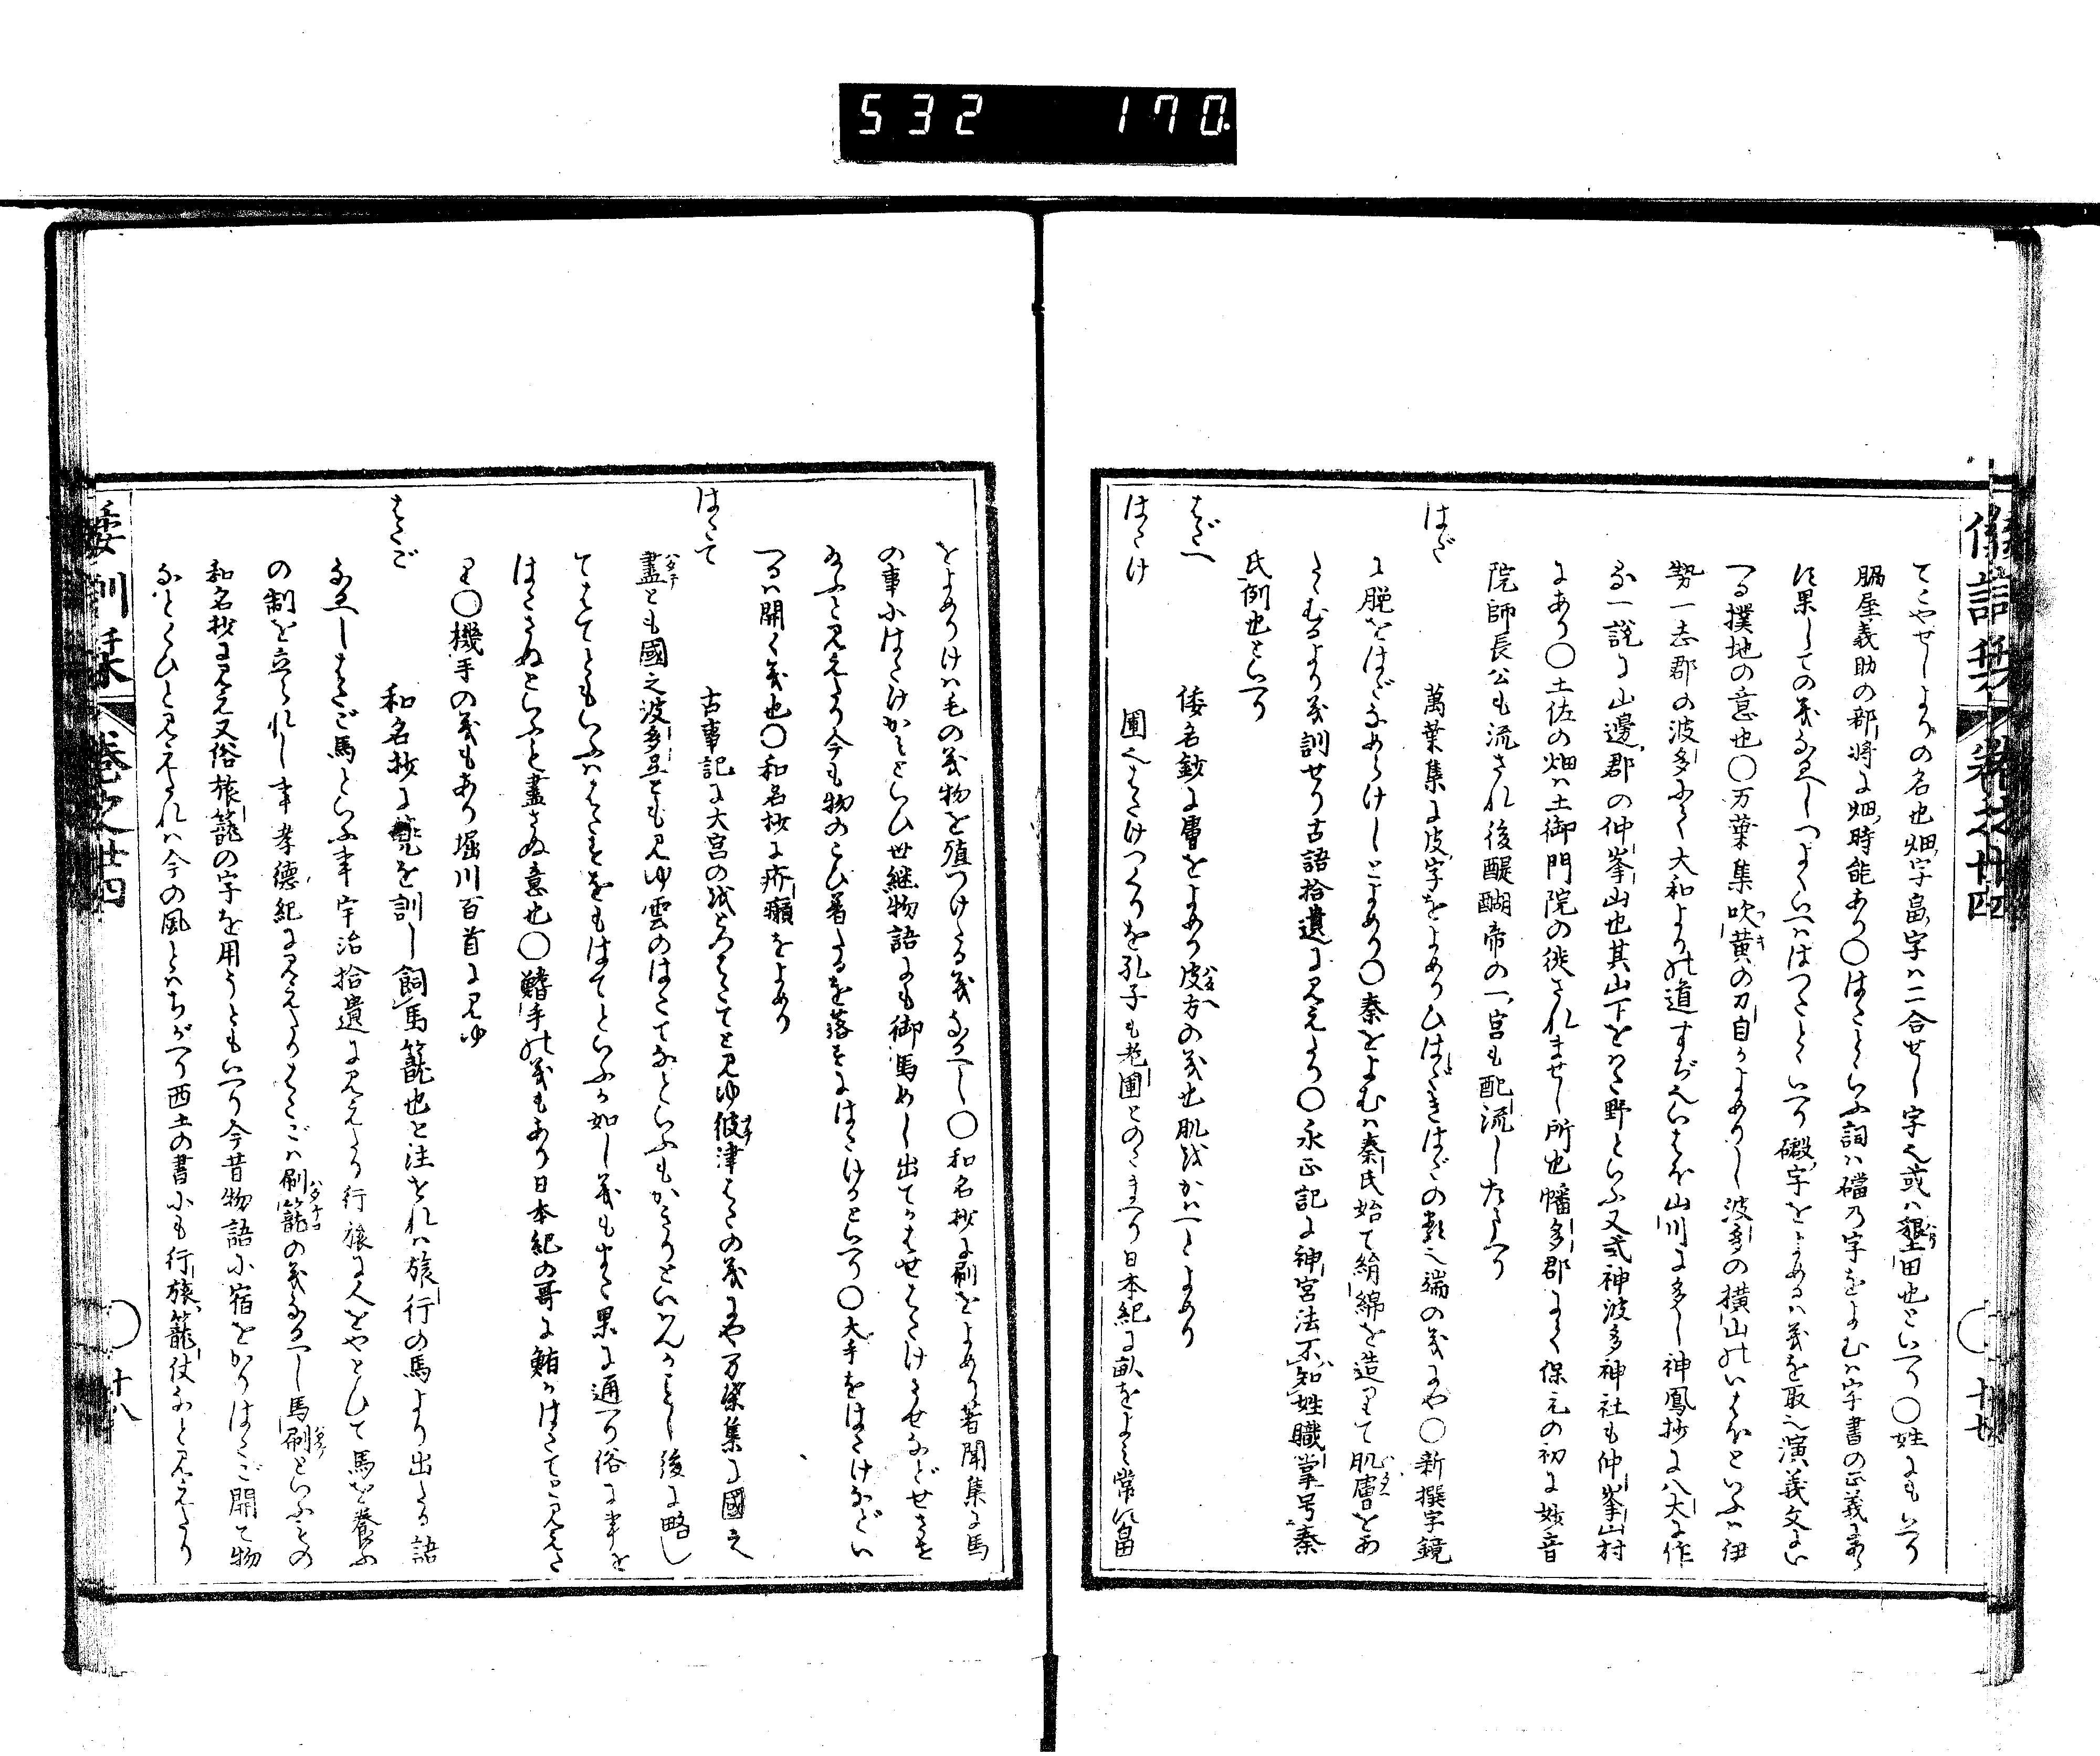 532 170
てこやせしよりの名也畑字畠字ハ二合せし字也或ハ墾田也といへり○姓にもいへり
脇屋義助の郡将に畑時能あり○はたといふ詞ハ礑乃字をよむハ字書の正義にあら
す果しての義なるへしつよくいへはつたとといへり礮字をよめるハ義を取也演義文にい
へる撲地の意也○万葉集吹黄の刀自かよめりし波多の横山のいはほといふハ伊
勢一志郡の波多にて大和よりの道すぢ也いはほ山川に多し神鳳抄に八太に作
る一説に山邊郡の仲峯山也其山下をはた野といふ又弐神波多神社も仲峯山村
にあり○土佐の畑ハ土御門院の徙されませし所也幡多郡にて保元の初に妙音
院師長公も流され後醍醐帝の一宮も配流したまへり
はだ 萬葉集に皮字をよめりひはだきはだの類也端の義にや○新撰字鏡
に脱をはだなあらけしとよめり○秦をよむハ秦氏始て絹綿を造りて肌膚をあ
たゝむるより義訓せり古語拾遺に見えたり○永正記に神宮法不知姓職掌号秦
氏例也といへり
はだへ 倭名鈔に膚をよめり皮方の義也肌をかハへとよめり
はたけ 圃也はたけつくりを孔子も老圃とのたまへり日本紀に畝をよみ常に畠
倭訓栞 巻之廿四 ○十七
をよめりけハ毛の義物を殖つけたる義なるへし○和名抄に刷をよめり著聞集に馬
の事にはたけかみといひ世継物語にも御馬めし出てはせはたけさせなどせさせ
給ふと見えたり今も物のこひ着たるを落すにはたけるといへり○大手をはたけなどい
へるハ開く義也○和名抄に疥癩をよめり
はたて 古事記に大宮のをとつはたてと見ゆ彼津はたの義にや万葉集に國之
盡とも國之波多弖とも見ゆ雲のはたてなどといふもかきりといはんかことし後に略し
てはてともいふハはたすをもはてといふか如し義もまた果に通へり俗に事を
はたさぬといふと盡さぬ意也○鰭手の義もあり日本紀の哥に鮪かはたてと見えた
り○機手の義もあり堀川百首に見ゆ
はたご 和名抄に篼を訓し飼馬籠也と注すれハ旅行の馬より出たる語
なるへしはたご馬といふ事宇治拾遺に見えたり行旅に人をやとひて馬を養ふ
の制を立られし事孝徳紀に見えたりはたごハ刷籠の義なるへし馬刷といふもの
和名抄に見え又俗旅籠の字を用うともいへり今昔物語に宿をかりはたご開て物
なとくひと見えたれハ今の風とハちがへり西土の書にも行旅籠仗なと見えたり
倭訓栞 巻之廿四 ○十八